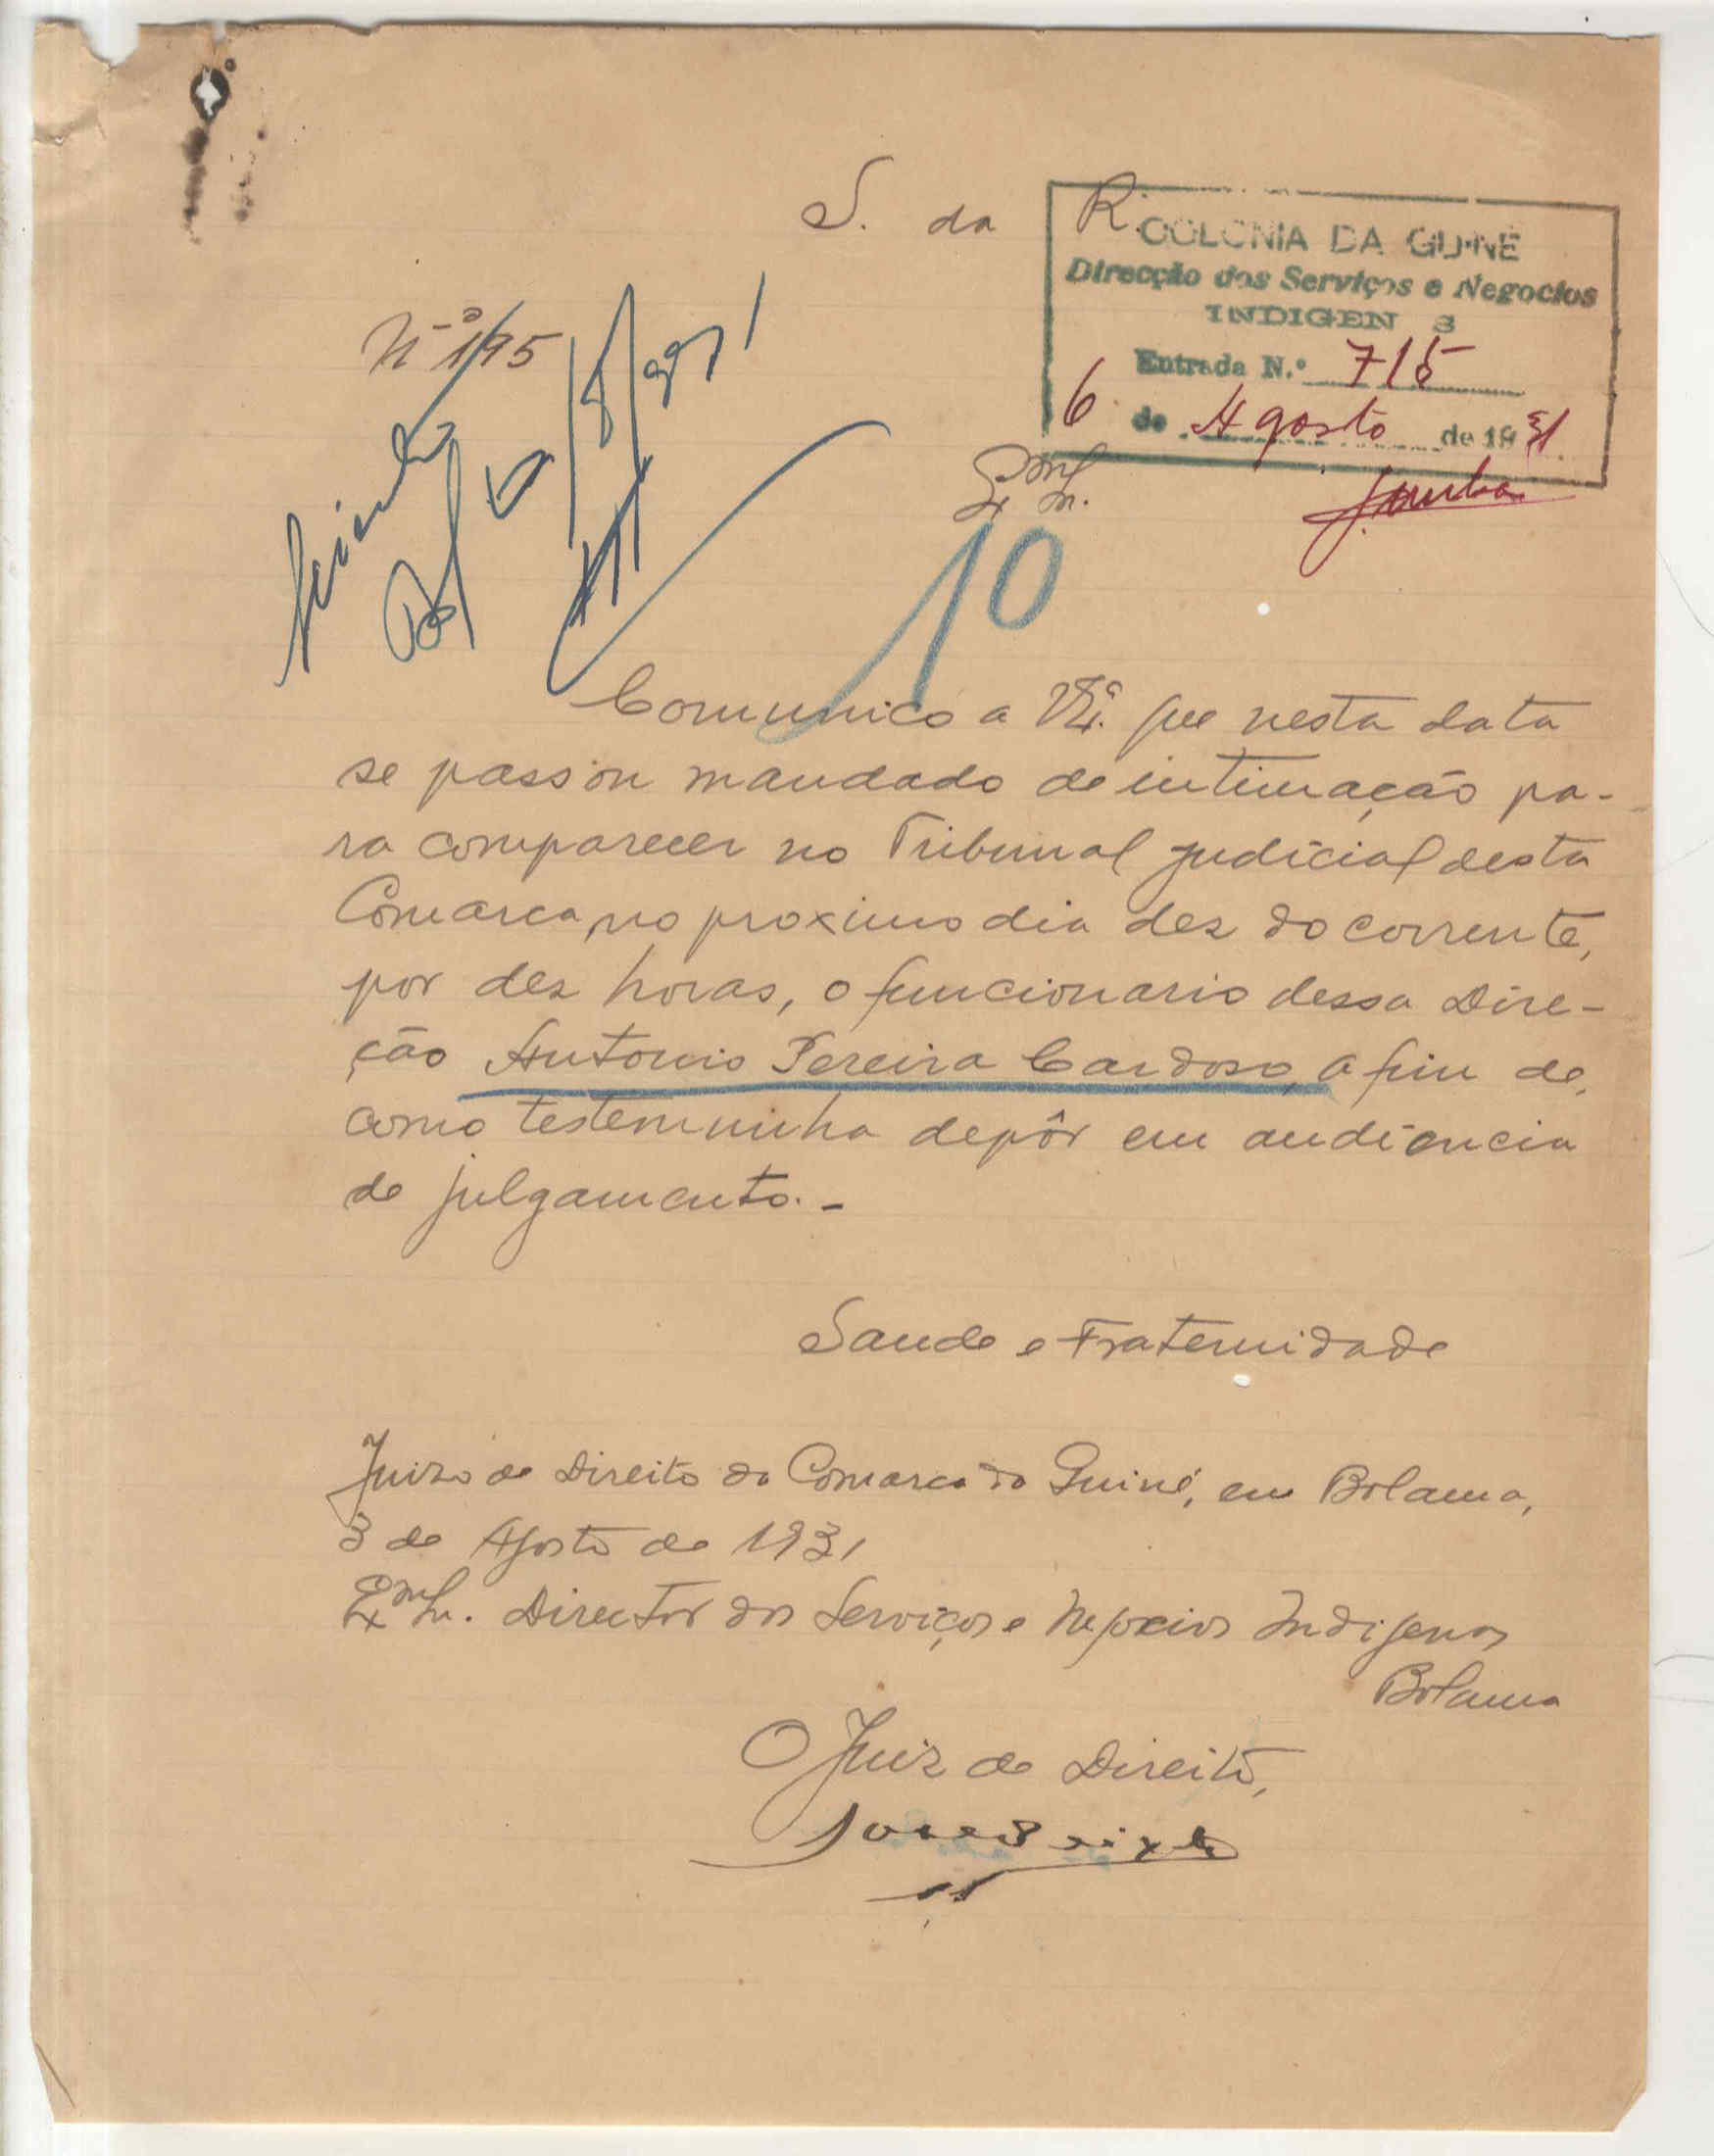 S. da R.
COLONIA DA GUINÉ
Direcção dos Serviços e Negocios
INDIGENAS
Entrada N.º 715
6 de Agosto de 1931
Nº 195
Exmo Sr.
10
Comunico a V. Exª. que nesta data
se passou mandado de intimação pa-
ra comparecer no Tribunal judicial desta
Comarca, no proximo dia dez do corrente,
por dez horas, o funcionario dessa Dire-
ção Antonio Pereira Cardoso, a fim de,
como testemunha depôr em audiencia
de julgamento.-
Saude e Fraternidade
Juizo de Direito da Comarca da Guiné, em Bolama,
3 de Agosto de 1931
Exmo Sr. Director dos Serviços e Negocios Indigenas
Bolama
O Juiz de Direito,